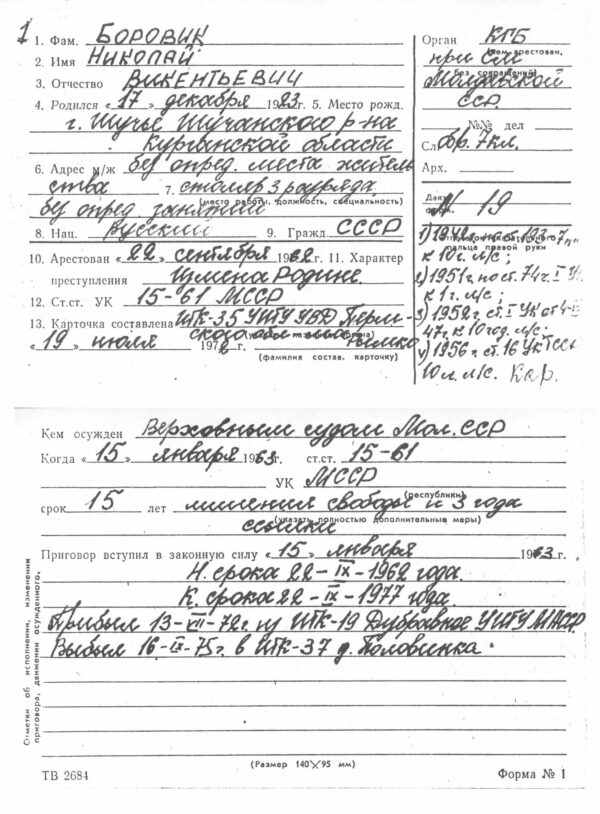 1
1. Фам. БОРОВИК
2. Имя НИКОЛАЙ
3. Отчество ВИКЕНТЬЕВИЧ
4. Родился «17» декабря 1923 г. 5. Место рожд.
г. Щучье Щучанского р-на
Курганской области
6. Адрес м/ж без опред. места житель
ства 7. столяр 3 разряда
(место работы, должность, специальность)
без опред. занятий
8. Нац. Русский 9. Гражд. СССР
10. Арестован «22» сентября 1962 г. 11. Характер
преступления Измена Родине.
12. Ст.ст. УК 15-61 МССР
13. Карточка составлена ИТК-35 УИТУ УВД Перм-
ского
«19» июля 1972 г.
(фамилия состав. карточку)
Орган КГБ
(кем арестован,
при СМ
без сокращений)
Молдавской
ССР.
№№ дел
Сл. обр. 7 кл.
Арх.
Дакт.
19
пальца правой руки
к 10 г. л/с;
2) 1951 г. по ст. 74 ч. I УК
к 1 г. л/с;
47 г. к 10 год. л/с;
10 л. л/с. Кар.
Кем осужден Верховным судом Мол. ССР
Когда «15» января 1963 г. ст.ст. 15-61
УК МССР
(республики)
срок 15 лет лишения свободы и 3 года
(указать полностью дополнительные меры)
ссылки
Приговор вступил в законную силу «15» января 1963 г.
Н. срока 22-IX-1962 года.
К. срока 22-IX-1977 года.
Прибыл 13-VII-72 г. из ИТК-19 Дубравное УИТУ МАССР
Выбыл 16-IX-75 г. в ИТК-37 д. Половинка.
Отметки об исполнении, изменении
приговора, движении осужденного,
(Размер 140×95 мм)
ТВ 2684
Форма № 1